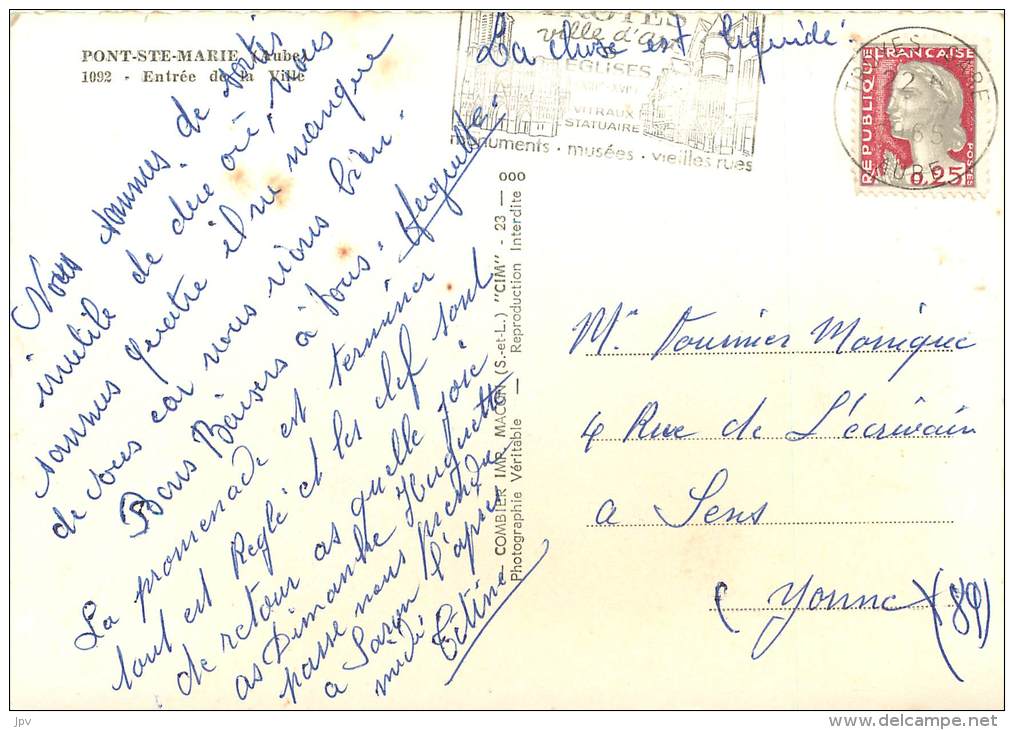 PONT-STE-MARIE (Aube)
1092 - Entrée de la Ville
TROYES
ville d'art
EGLISES
VITRAUX
STATUAIRE
monuments - musées - vieilles rues
La chose est liquidé
TROYES GARE
65
AUBE
REPUBLIQUE FRANÇAISE
POSTES
0,25
Nous sommes de sorties
inutile de dire où, nous
sommes quatre il ne manque
de vous car nous rions bien.
Bons Baisers à tous. Huguette.
La promenade est terminer
tout est Reglé et les clef sont
de retour as quelle joie
as Dimanche Huguette
passe nous prendre
a l'après
midi Titine
ooo
— COMBIER IMP. MACON (S.-et-L.) "CIM" - 23 —
Photographie Véritable — Reproduction Interdite
Monique
4 Rue de L'écrivain
a Sens
(Yonne) (89)
jpv
www.delcampe.net